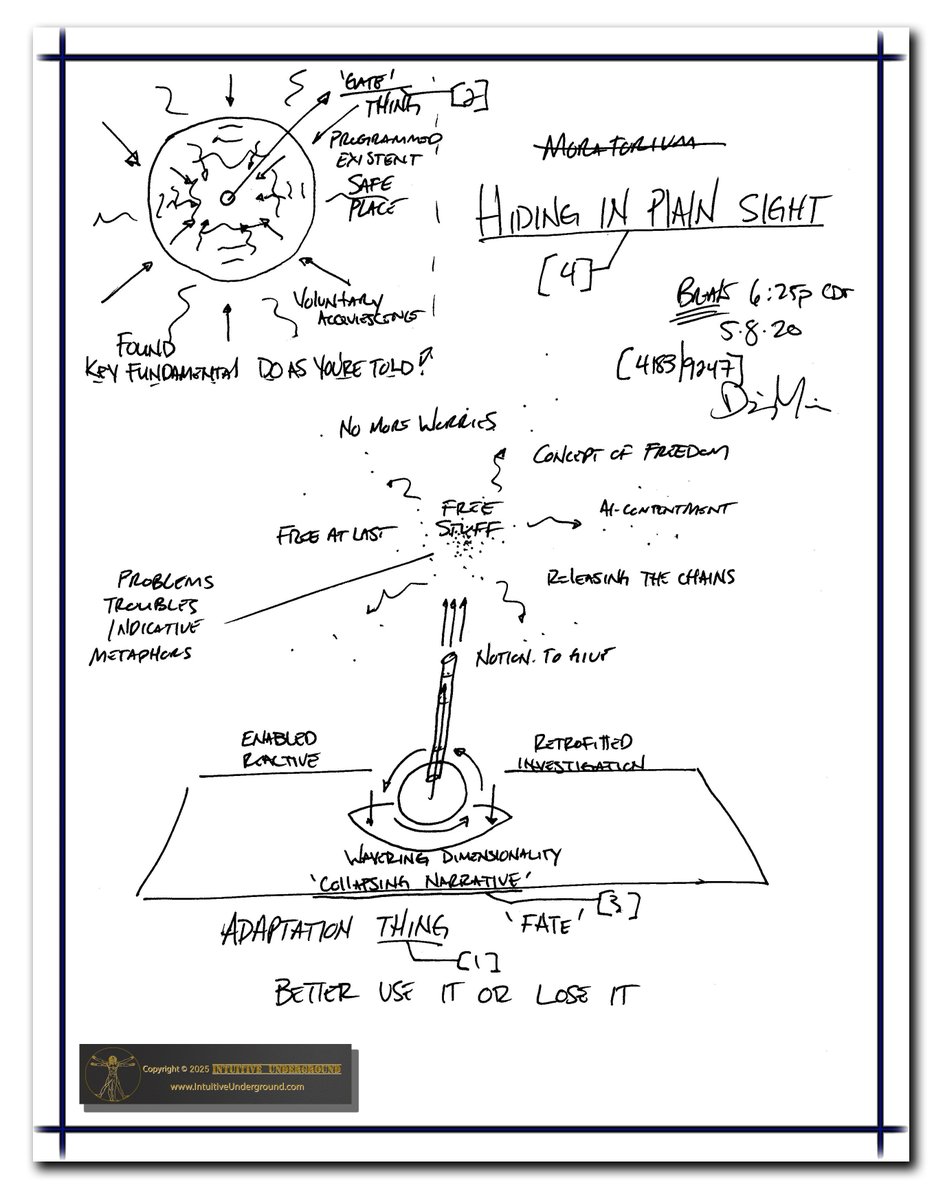 'GATE'
THING [2]
PROGRAMMED
EXISTENT
SAFE
PLACE
VOLUNTARY
ACQUIESCING
FOUND
KEY FUNDAMENTAL DO AS YOU'RE TOLD?
MORATORIUM
HIDING IN PLAIN SIGHT
[4]
BREAK 6:25p CDT
5.8.20
[4183/9247]
NO MORE WORRIES
CONCEPT OF FREEDOM
FREE
STUFF
AI-CONTENTMENT
FREE AT LAST
RELEASING THE CHAINS
PROBLEMS
TROUBLES
INDICATIVE
METAPHORS
NOTION. TO GIVE
ENABLED
REACTIVE
RETROFITTED
INVESTIGATION
WAVERING DIMENSIONALITY
'COLLAPSING NARRATIVE'
'FATE' [3]
ADAPTATION THING
[1]
BETTER USE IT OR LOSE IT
Copyright © 2025 INTUITIVE UNDERGROUND
www.IntuitiveUnderground.com